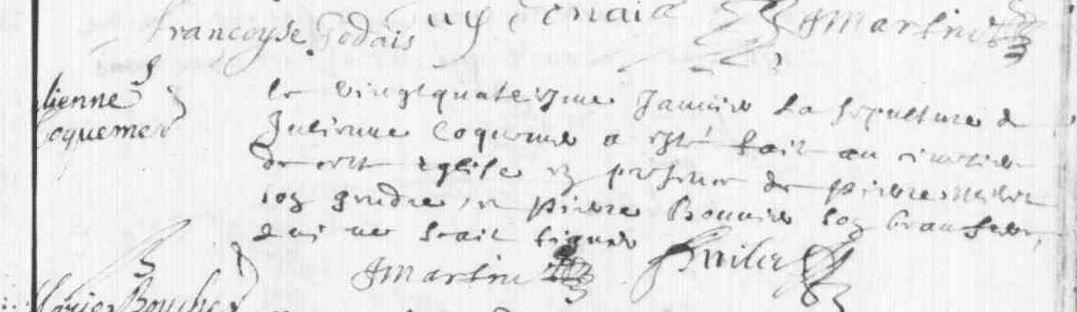 françoyse Godais JMartin
lienne
Coquemer
le vingtquatriesme Janvier la sepulture de
Julienne Coquemer a esté fait au cimetiere
de cette eglise en presence de pierre
son gendre, et pierre Bonnier son beaufrere,
qui ne scait signer
JMartin
Marie Boucher